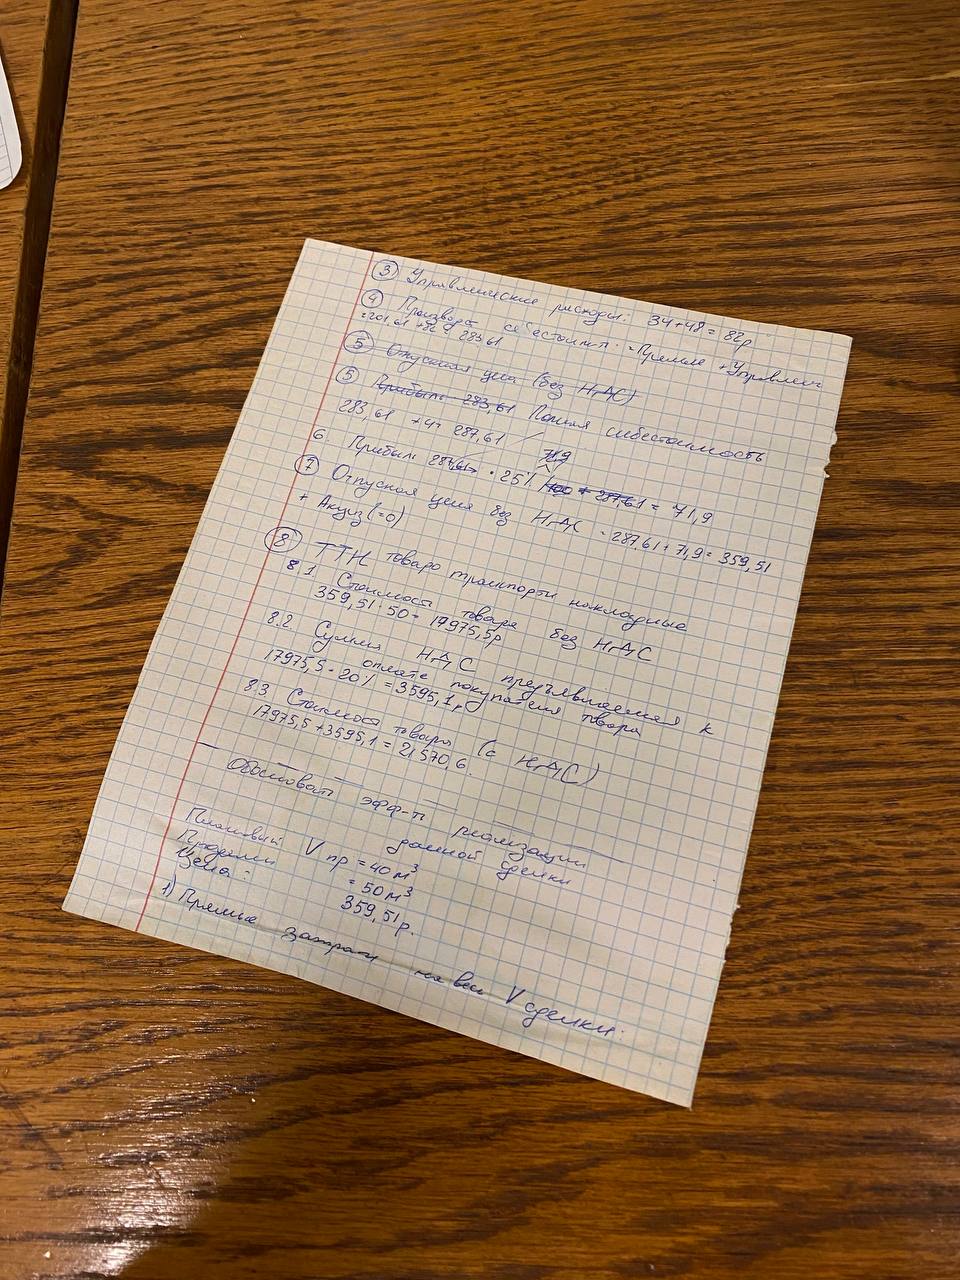 3 Управленческие расходы: 34+48 = 82р
4 Производст себестоимт. = Прямые + Управленч
=201,61 +82 = 283,61
5 Отпускная цена (без НДС)
5 Прибыль 283,61 Полная себестоимость
283,61 +4 = 287,61
6. Прибыль 287,61 · 25% = 71,9
7 Отпускная цена без НДС = 287,61 + 71,9 = 359,51
+ Акциз (=0)
8 ТТН товаро транспортн накладные
8.1. Стоимость товара без НДС
359,51 · 50 = 17975,5р
8.2. Сумма НДС предъявляемая к
оплате покупателя товара
17975,5 · 20% = 3595,1р
8.3 Стоимость товара (с НДС)
17975,5 + 3595,1 = 21570,6.
Обосновать эфф-ть реализации
данной сделки
Плановый V пр = 40 м³
Продали = 50 м³
Цена: 359,51р.
1) Прямые затраты на весь V сделки: